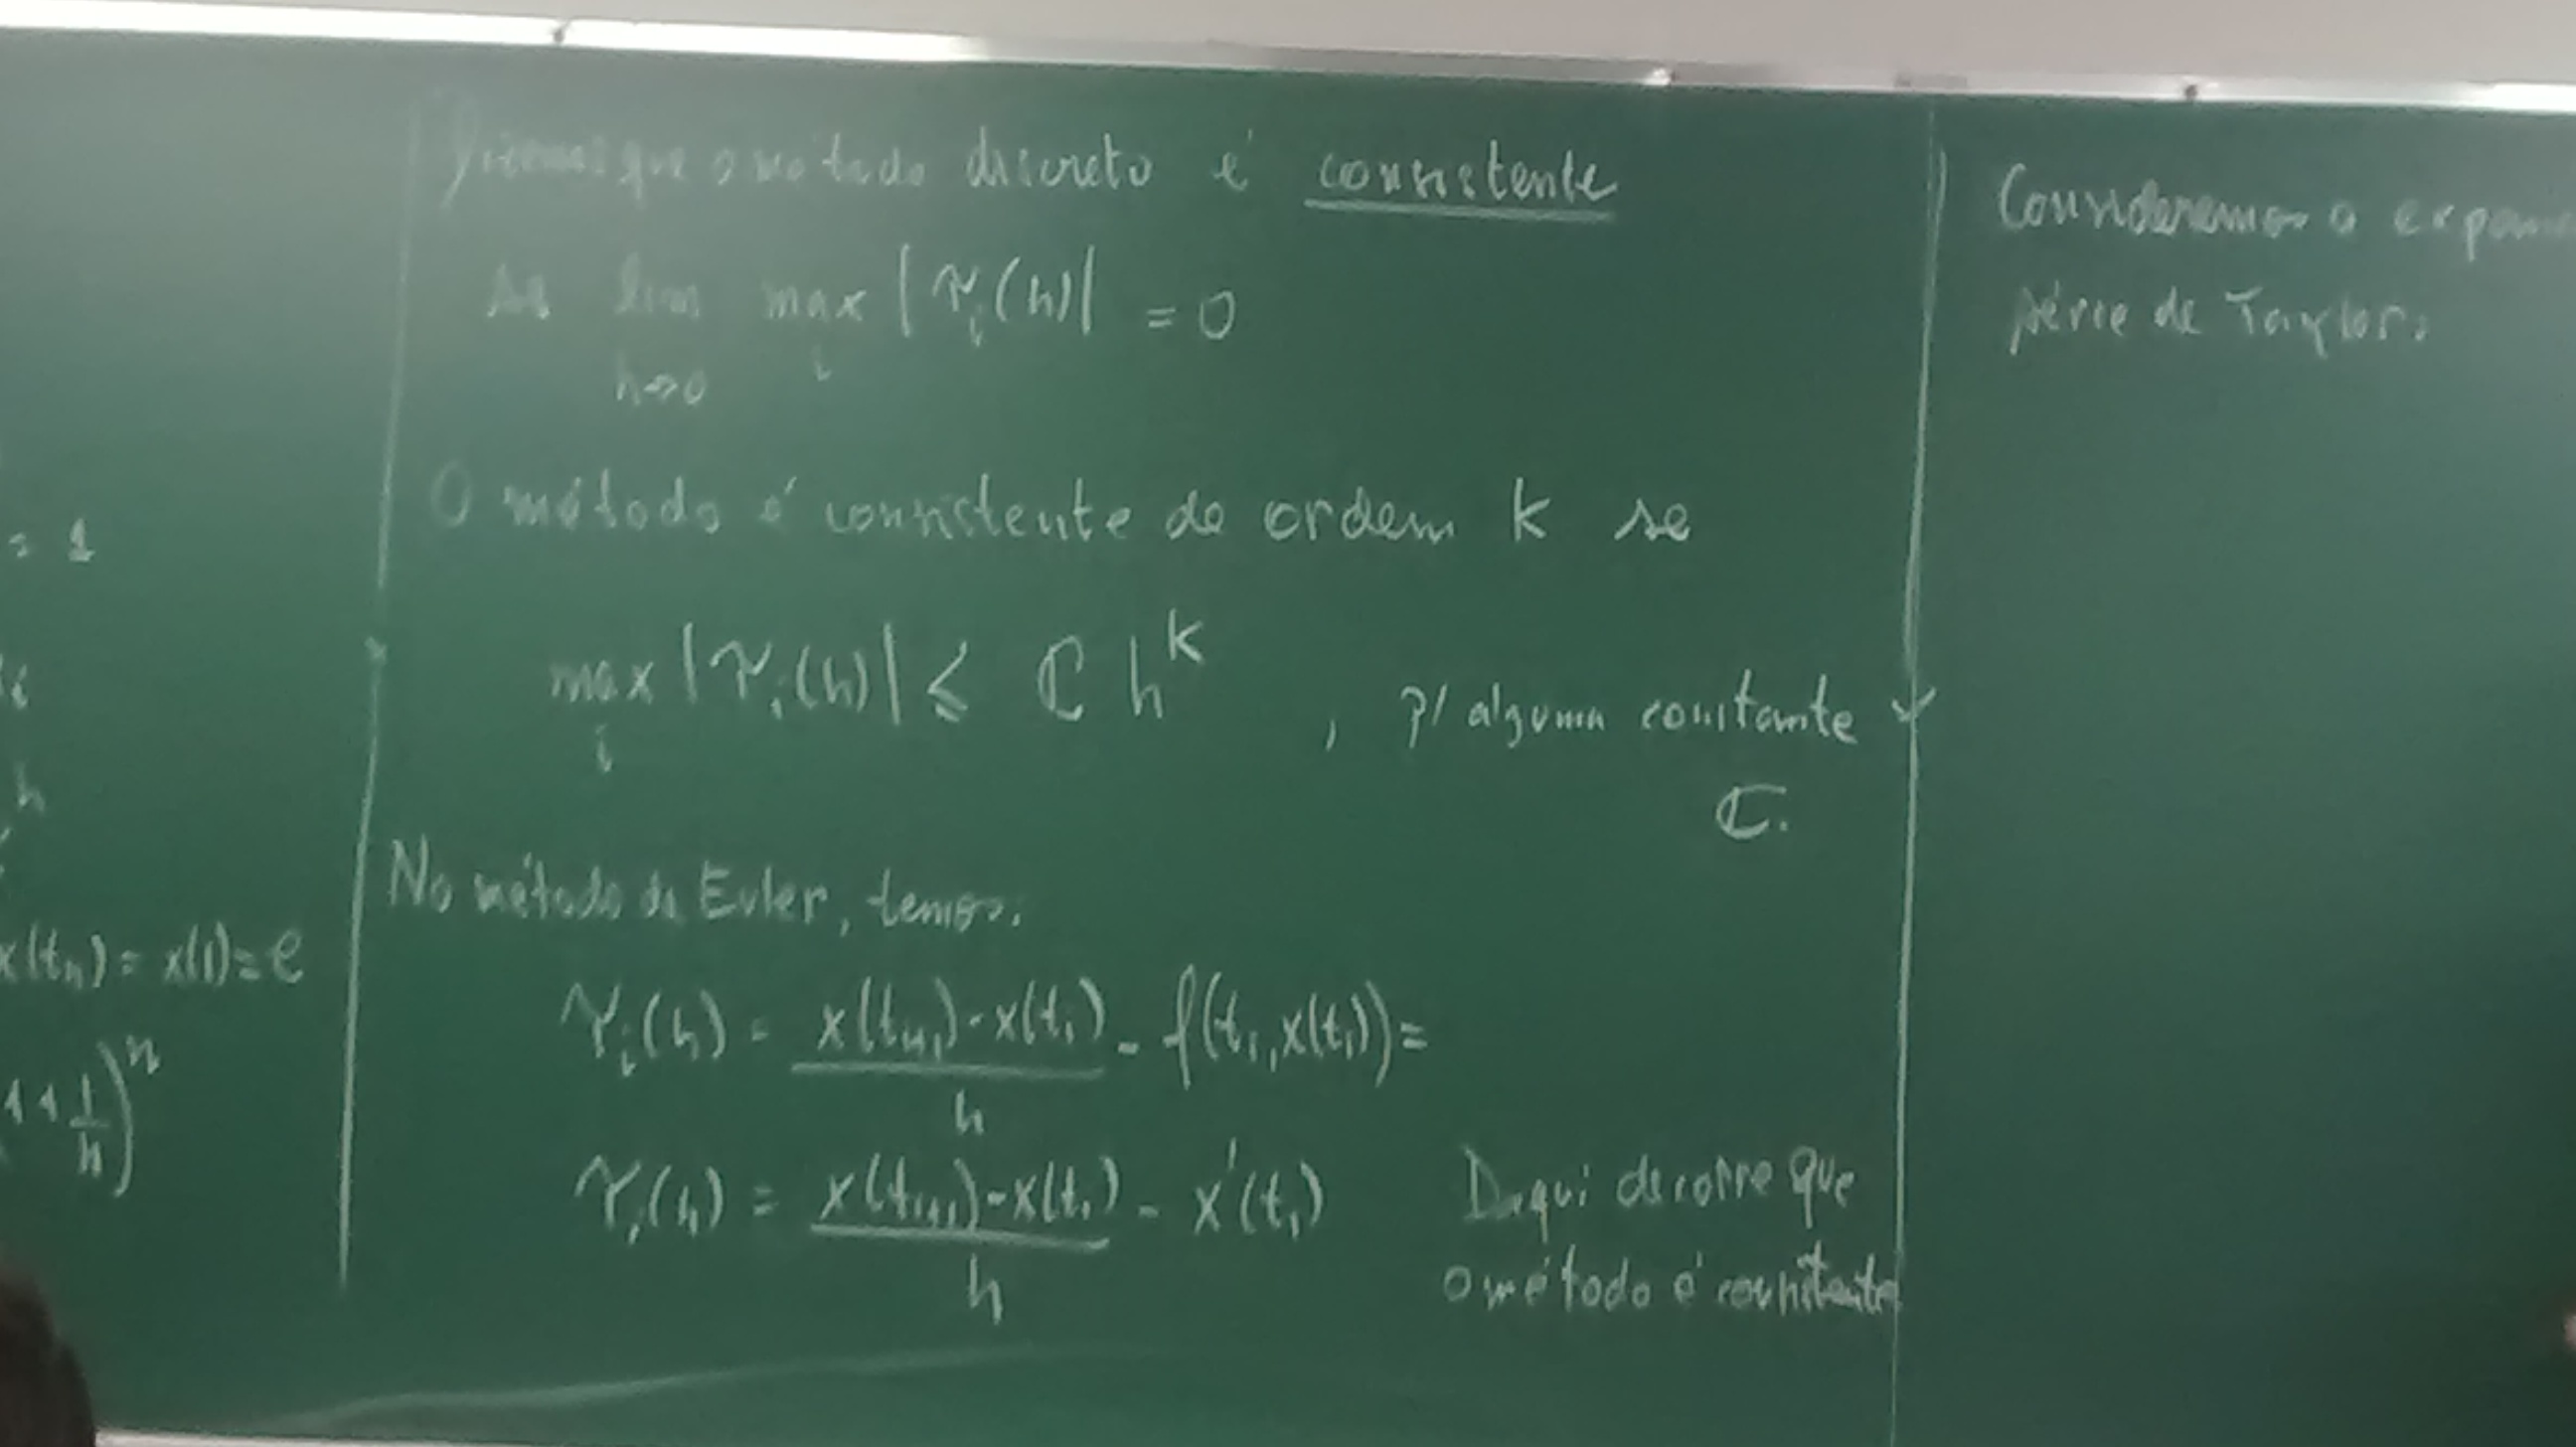 = 1
h
x(tₙ) = x(1) = e
1 + 1/n)ⁿ
Dizemos que o método discreto é consistente
se lim max |τᵢ(h)| = 0
h→0 i
O método é consistente de ordem k se
max |τᵢ(h)| ≤ ℂ hᵏ , p/ alguma constante
i
ℂ.
No método de Euler, temos:
τᵢ(h) = x(tᵢ₊₁) - x(tᵢ) / h - f(tᵢ, x(tᵢ)) =
τᵢ(h) = x(tᵢ₊₁) - x(tᵢ) / h - x'(tᵢ)
Daqui decorre que
o método é consistente
Consideremos a
série de Taylor: